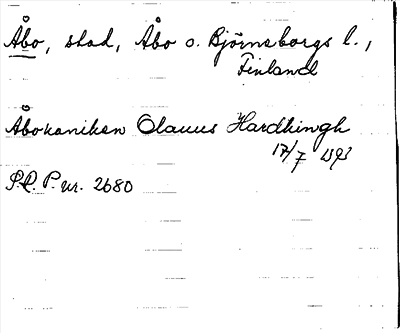 Åbo, stad, Åbo o. Björneborgs l.,
Finland
Åbokaniken Olauus Hardhingh
17/7 1393
S.R. P. nr. 2680